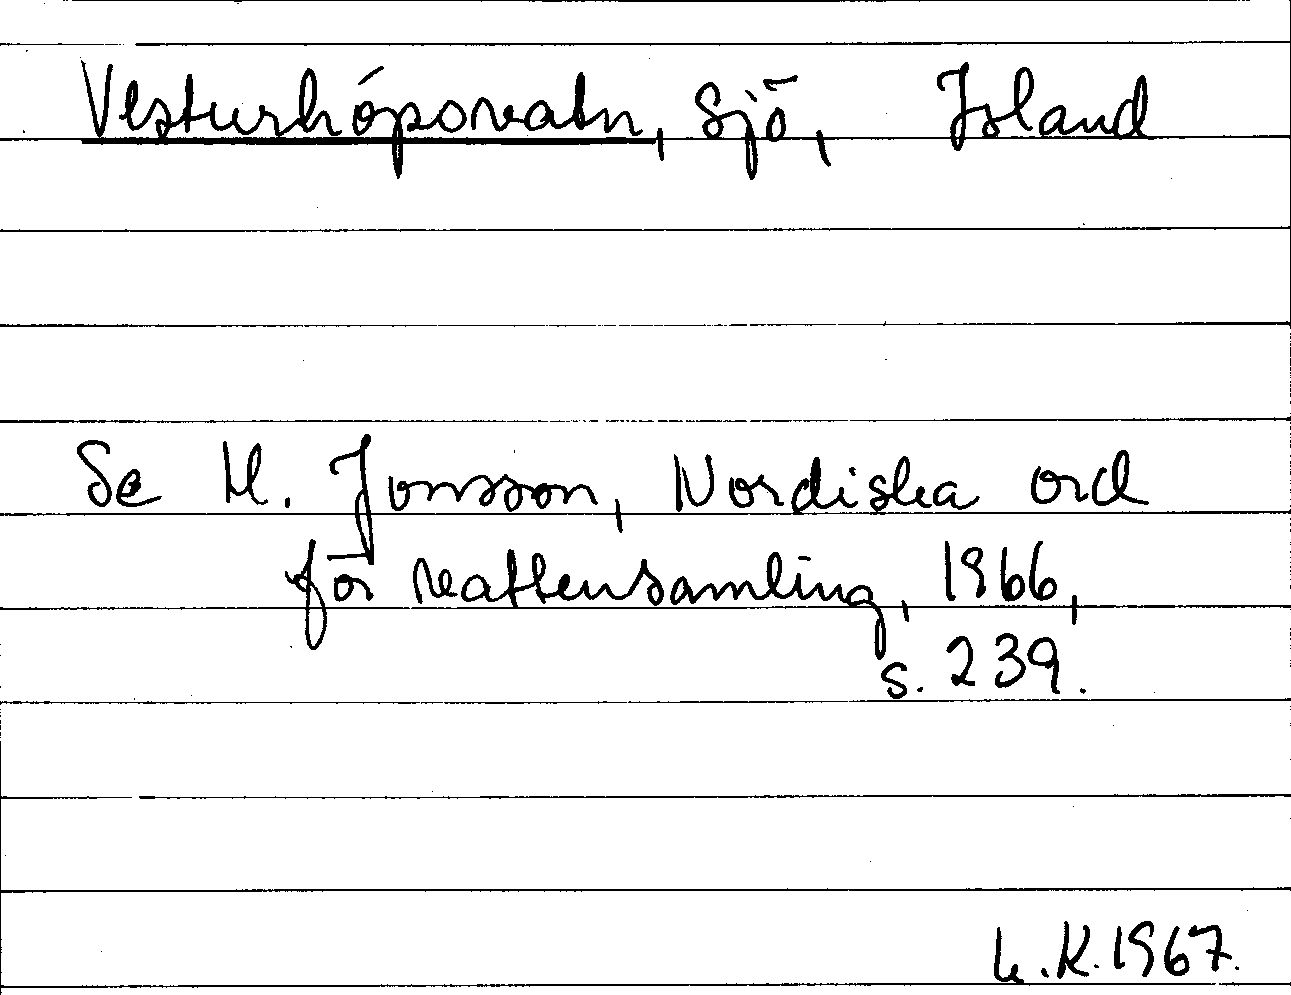 Vesturhópsvatn, sjö, Island
Se H. Jonsson, Nordiska ord
för vattensamling, 1966,
s. 239.
L.K. 1967.